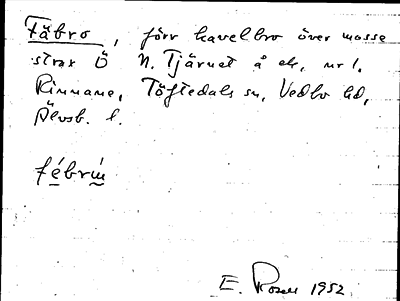 Fäbro, förr kavelbro över mosse
strax Ö N. Tjärnet å ek. nr 1.
Rinnane, Töftedals sn, Vedbo hd,
Älvsb. l.
E. 1952